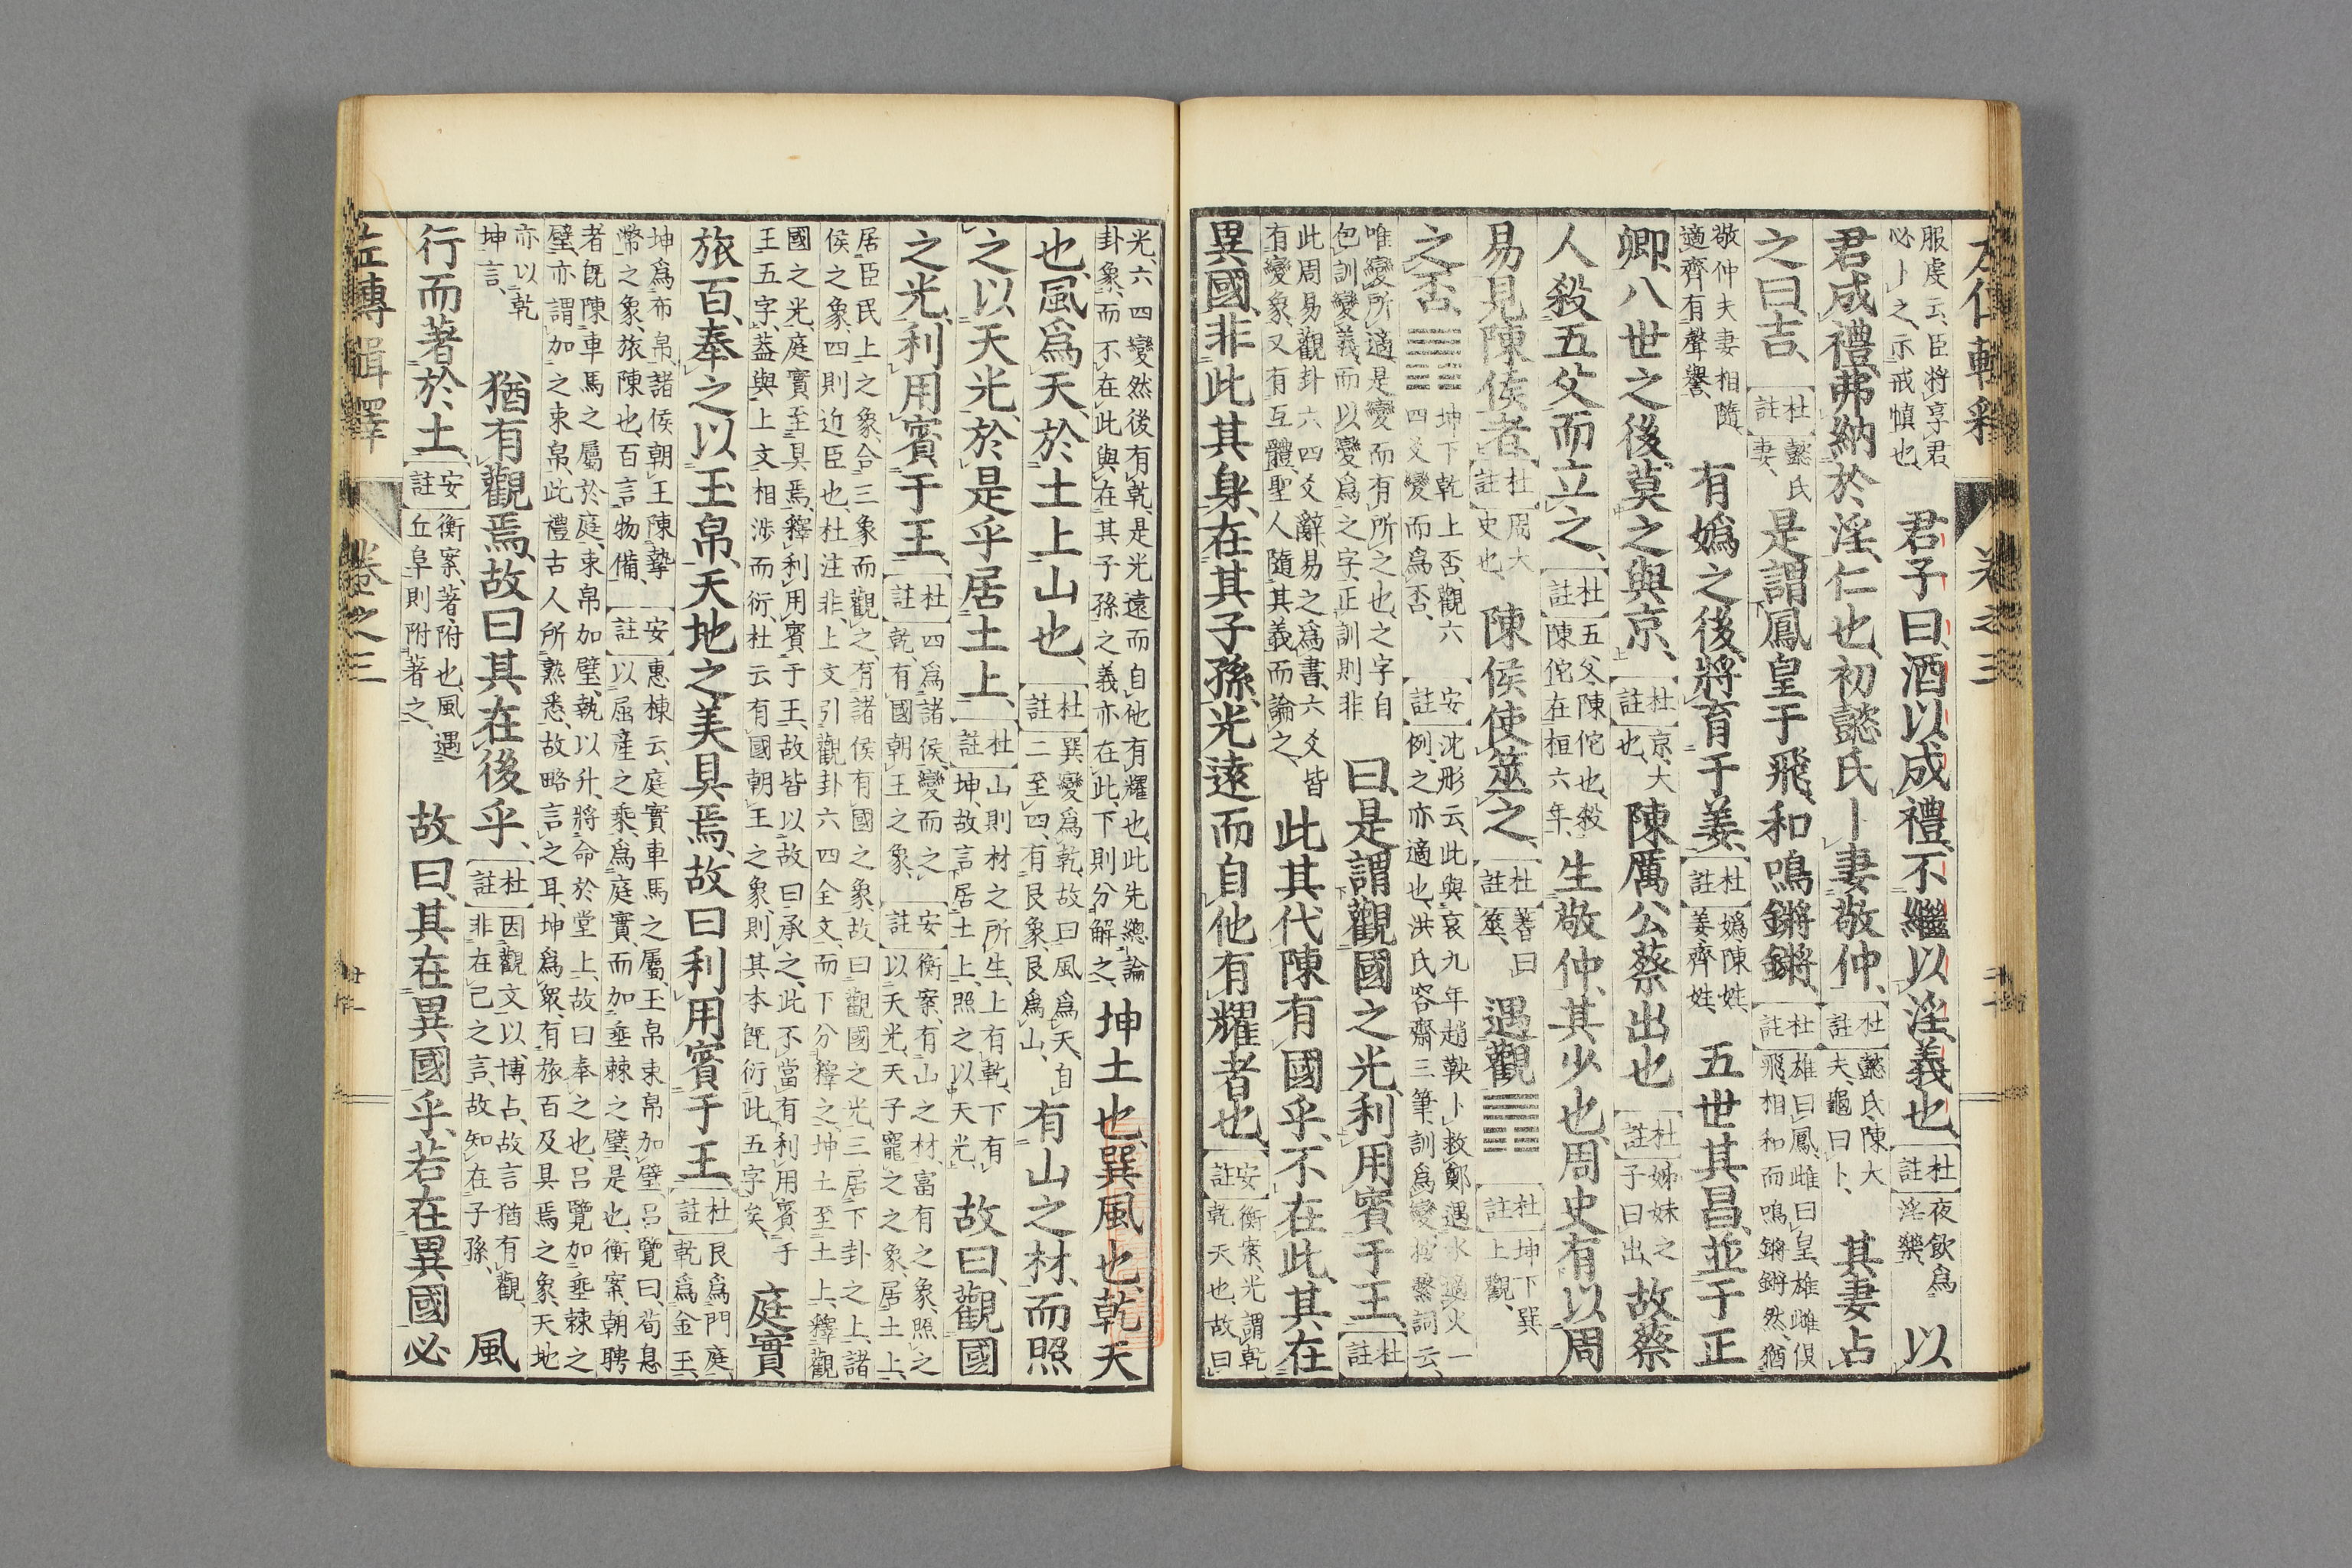 左傳輯釋 卷之三
服虔云、臣將享君
必卜之、示戒愼也、
君子曰、酒以成禮、不繼以淫、義也、
杜註
夜飮爲
淫樂、
以
君成禮、弗納於淫、仁也、初懿氏卜妻敬仲、
杜註
懿氏、陳大
夫、龜曰卜、
其妻占
之曰、吉、
杜註
懿氏
妻、
是謂鳳皇于飛、和鳴鏘鏘、
杜註
雄曰鳳、雌曰皇、雄雌俱
飛、相和而鳴鏘鏘然、猶
敬仲夫妻相隨
適齊有聲譽、
有嬀之後、將育于姜、
杜註
嬀、陳姓、
姜、齊姓、
五世其昌、並于正
卿、八世之後、莫之與京、
杜註
京、大
也、
陳厲公蔡出也
杜註
姊妹之
子曰出、
故蔡
人殺五父而立之、
杜註
五父、陳佗也、殺
陳佗在桓六年、
生敬仲、其少也、周史有以周
易見陳侯者、
杜註
周大
史也、
陳侯使筮之、
杜註
蓍曰
筮、
遇觀䷓
杜註
坤下巽
上觀、
之否、䷋
坤下乾上否、觀六
四爻變而爲否、
安註
沈彤云、此與哀九年趙鞅卜救鄭遇水適火一
例、之亦適也、洪氏容齋三筆、訓爲變、按繫詞云、
唯變所適、是變而有所之也、之字自
包訓變義、而以變爲之字正訓則非
曰、是謂觀國之光、利用賓于王、
杜註
此周易觀卦六四爻辭、易之爲書、六爻皆
有變象、又有互體、聖人隨其義而論之、
此其代陳有國乎、不在此、其在
異國、非此其身、在其子孫、光遠而自他有耀者也、
安註
衡案、光謂乾
乾天也、故曰
光、六四變然後有乾、是光遠而自他有耀也、此先總論
卦象、而不在此與在其子孫之義亦在此、下則分解之、
坤土也、巽風也、乾天
也、風爲天、於土上、山也、
杜註
巽變爲乾、故曰風爲天、自
二至四、有艮象、艮爲山、
有山之材、而照
之以天光、於是乎居土上、
杜註
山則材之所生、上有乾、下有
坤、故言居土上、照之以天光、
故曰、觀國
之光、利用賓于王、
杜註
四爲諸侯、變而之
乾、有國朝王之象、
安註
衡案、有山之材、富有之象、照之
以天光、天子寵之之象、居土上、
居臣民上之象、合三象而觀之、有諸侯有國之象、故曰觀國之光、三居下卦之上、諸
侯之象、四則近臣也、杜注非、上文引觀卦六四全文、而下分釋之、坤土至土上、釋觀
國之光、庭實至具焉、釋利用賓于王、故皆以故曰承之、此不當有利用賓于
王五字、蓋與上文相涉而衍、杜云有國朝王之象、則其本旣衍此五字矣、
庭實
旅百、奉之以玉帛、天地之美具焉、故曰利用賓于王、
杜註
艮爲門庭、
乾爲金玉、
坤爲布帛、諸侯朝王陳摯
幣之象、旅陳也、百言物備、
安註
惠棟云、庭實車馬之屬、玉帛束帛加璧、呂覽曰、荀息
以屈產之乘、爲庭實、而加垂棘之璧、是也、衡案、朝聘
者旣陳車馬之屬於庭、束帛加璧、執以升、將命於堂上、故曰奉之也、呂覽加垂棘之
璧、亦謂加之束帛、此禮古人所熟悉、故略言之耳、坤爲衆、有旅百及具焉之象、天地
亦以乾
坤言、
猶有觀焉、故曰其在後乎、
杜註
因觀文以博占、故言猶有觀、
非在己之言、故知在子孫、
風
行而著於土、
安註
衡案、著、附也、風遇
丘阜則附著之、
故曰、其在異國乎、若在異國、必
左傳輯釋 卷之三